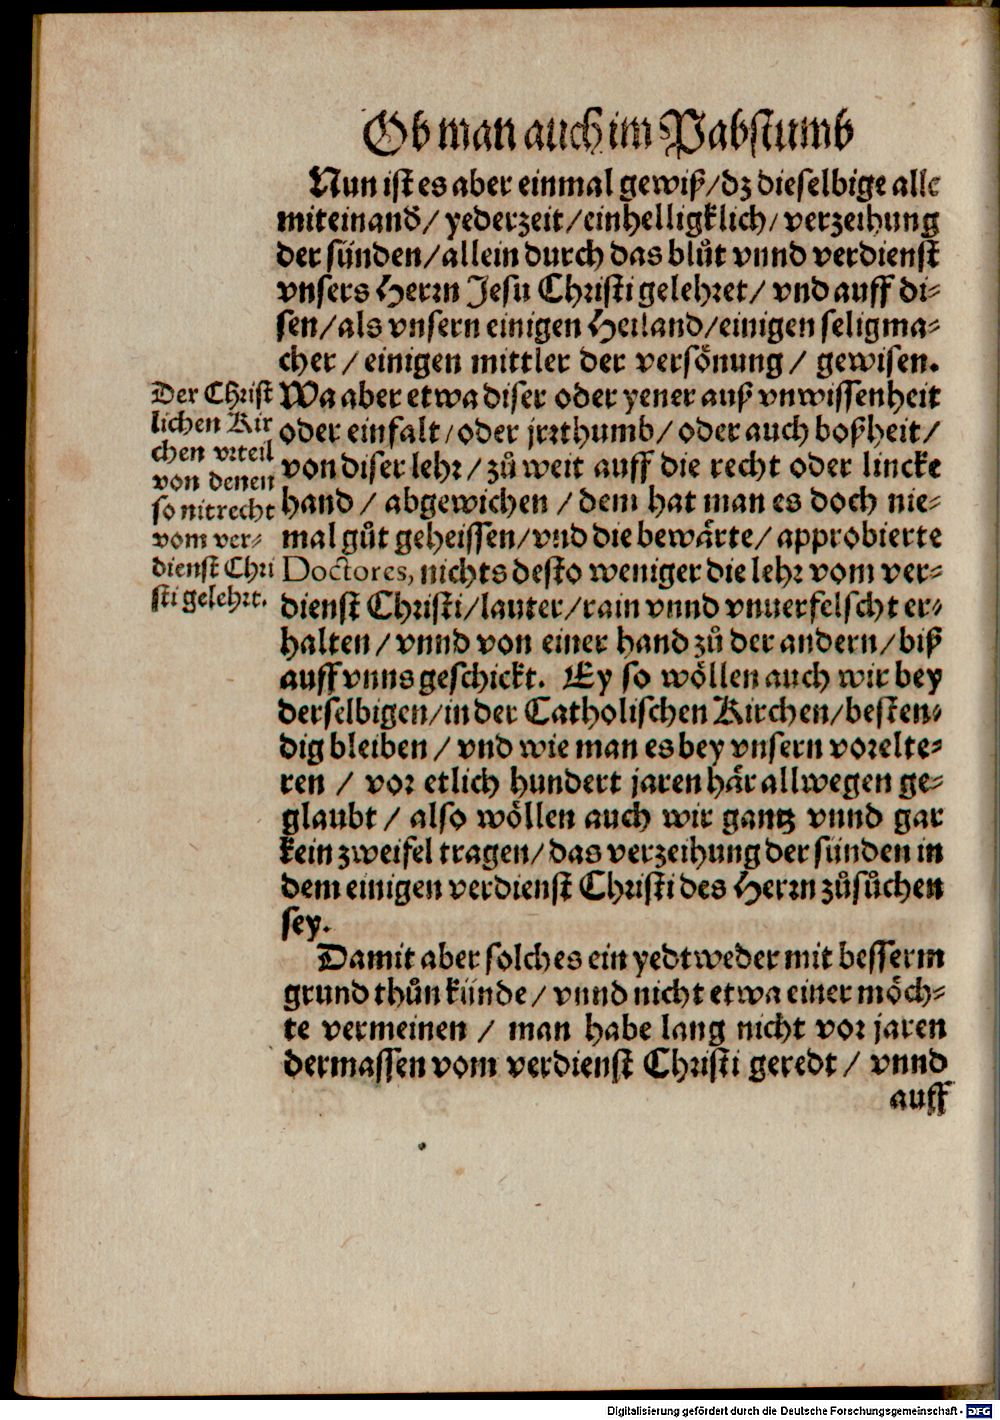 Ob man auch im Pabstumb
Nun ist es aber einmal gewiß/dz dieselbige alle
miteinand/ yederzeit/einhelligklich/ verzeihung
der sünden/allein durch das blůt vnnd verdienst
vnsers Herrn Jesu Christi gelehret/ vnd auff di-
sen/als vnsern einigen Heiland/einigen seligma-
cher/ einigen mittler der versönung/ gewisen.
Wa aber etwa diser oder yener auß vnwissenheit
oder einfalt/oder jrrthumb/ oder auch boßheit/
von diser lehr/ zů weit auff die recht oder lincke
hand/ abgewichen/ dem hat man es doch nie-
mal gůt geheissen/vnd die bewärte/ approbierte
Doctores, nichts desto weniger die lehr vom ver-
dienst Christi/lauter/rain vnnd vnuerfelscht er-
halten/ vnnd von einer hand zů der andern/ biß
auff vnns geschickt. Ey so wöllen auch wir bey
derselbigen/in der Catholischen Kirchen/besten-
dig bleiben/ vnd wie man es bey vnsern vorelte-
ren/ vor etlich hundert jaren här allwegen ge-
glaubt/ also wöllen auch wir gantz vnnd gar
kein zweifel tragen/das verzeihung der sünden in
dem einigen verdienst Christi des Herrn zůsůchen
sey.
Damit aber solches ein yedtweder mit besserm
grund thůn künde/ vnnd nicht etwa einer möch-
te vermeinen/ man habe lang nicht vor jaren
dermassen vom verdienst Christi geredt/ vnnd
auff
Der Christ
lichen Kir
chen vrteil
von denen
so nit recht
vom ver-
dienst Chri
sti gelehrt.
Digitalisierung gefördert durch die Deutsche Forschungsgemeinschaft - DFG